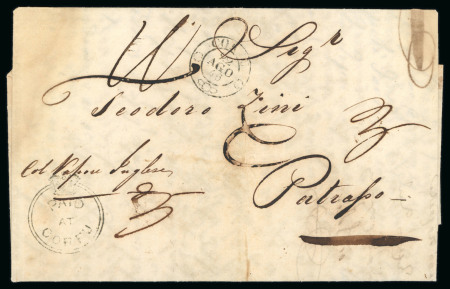 Sigr
Teodoro Zini
Col Vapore Inglese
Patrasso
AGO
PAID
AT
CORFU